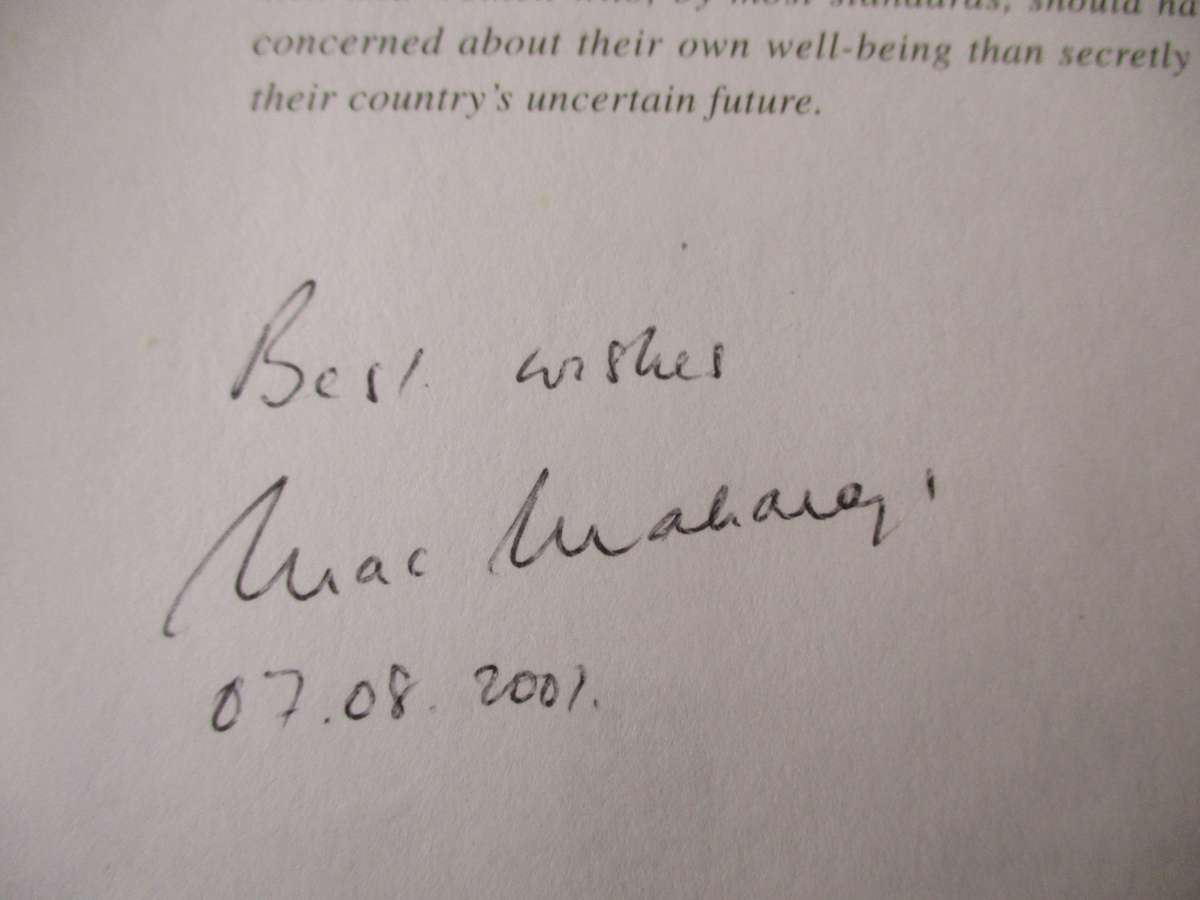 by most standards, should
concerned about their own well-being than secretly
their country's uncertain future.
Best wishes
Mac Maharaj.
07.08.2001.